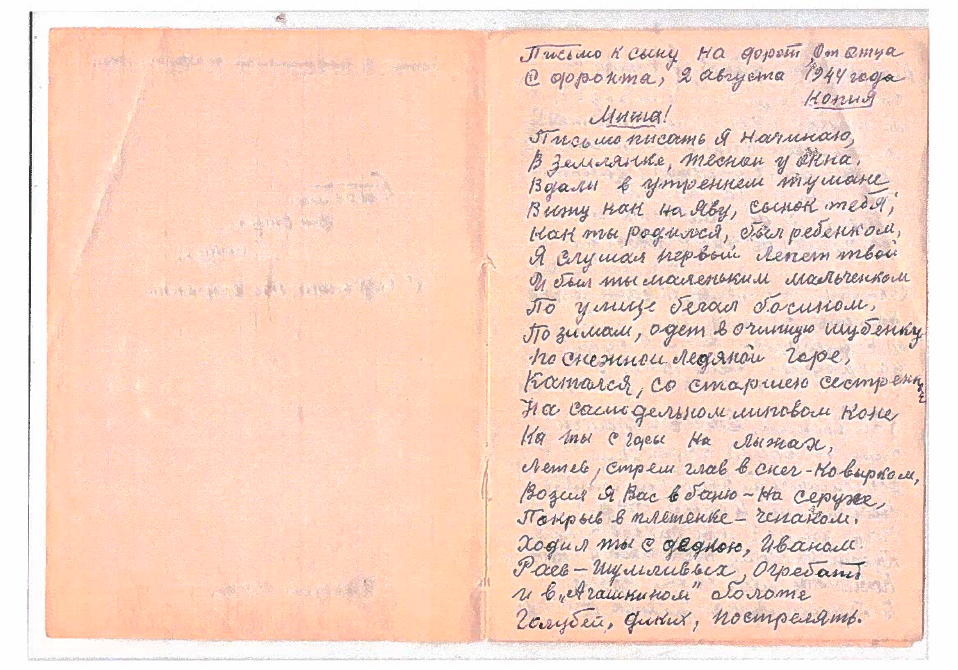 Письмо к сыну на фронт, От отца
С фронта, 2 августа 1944 года
Копия
Миша!
Письмо писать Я начинаю,
В Землянке, тесной у окна.
Вдали в утреннем тумане
Вижу как на Яву, сынок тебя,
Как ты родился, был ребенком,
Я слушал первый лепет твой
И был ты маленьким мальченком
По улице бегал босиком.
По зимам, одет в овчиную шубенку
По снежной ледяной горе,
Катался, со старшею сестренкой
На самодельном липовом коне
Как ты с горы на лыжах,
Летев, стрем глав в снег-Ковырком,
Возил я Вас в баню-На серуже,
Покрыв в плетенке-чепаком.
Ходил ты с дедкою, Иваном
Роев-Шумливых, Огребать
и в „Агашкином" болоте
Голубей, диких, пострелять.